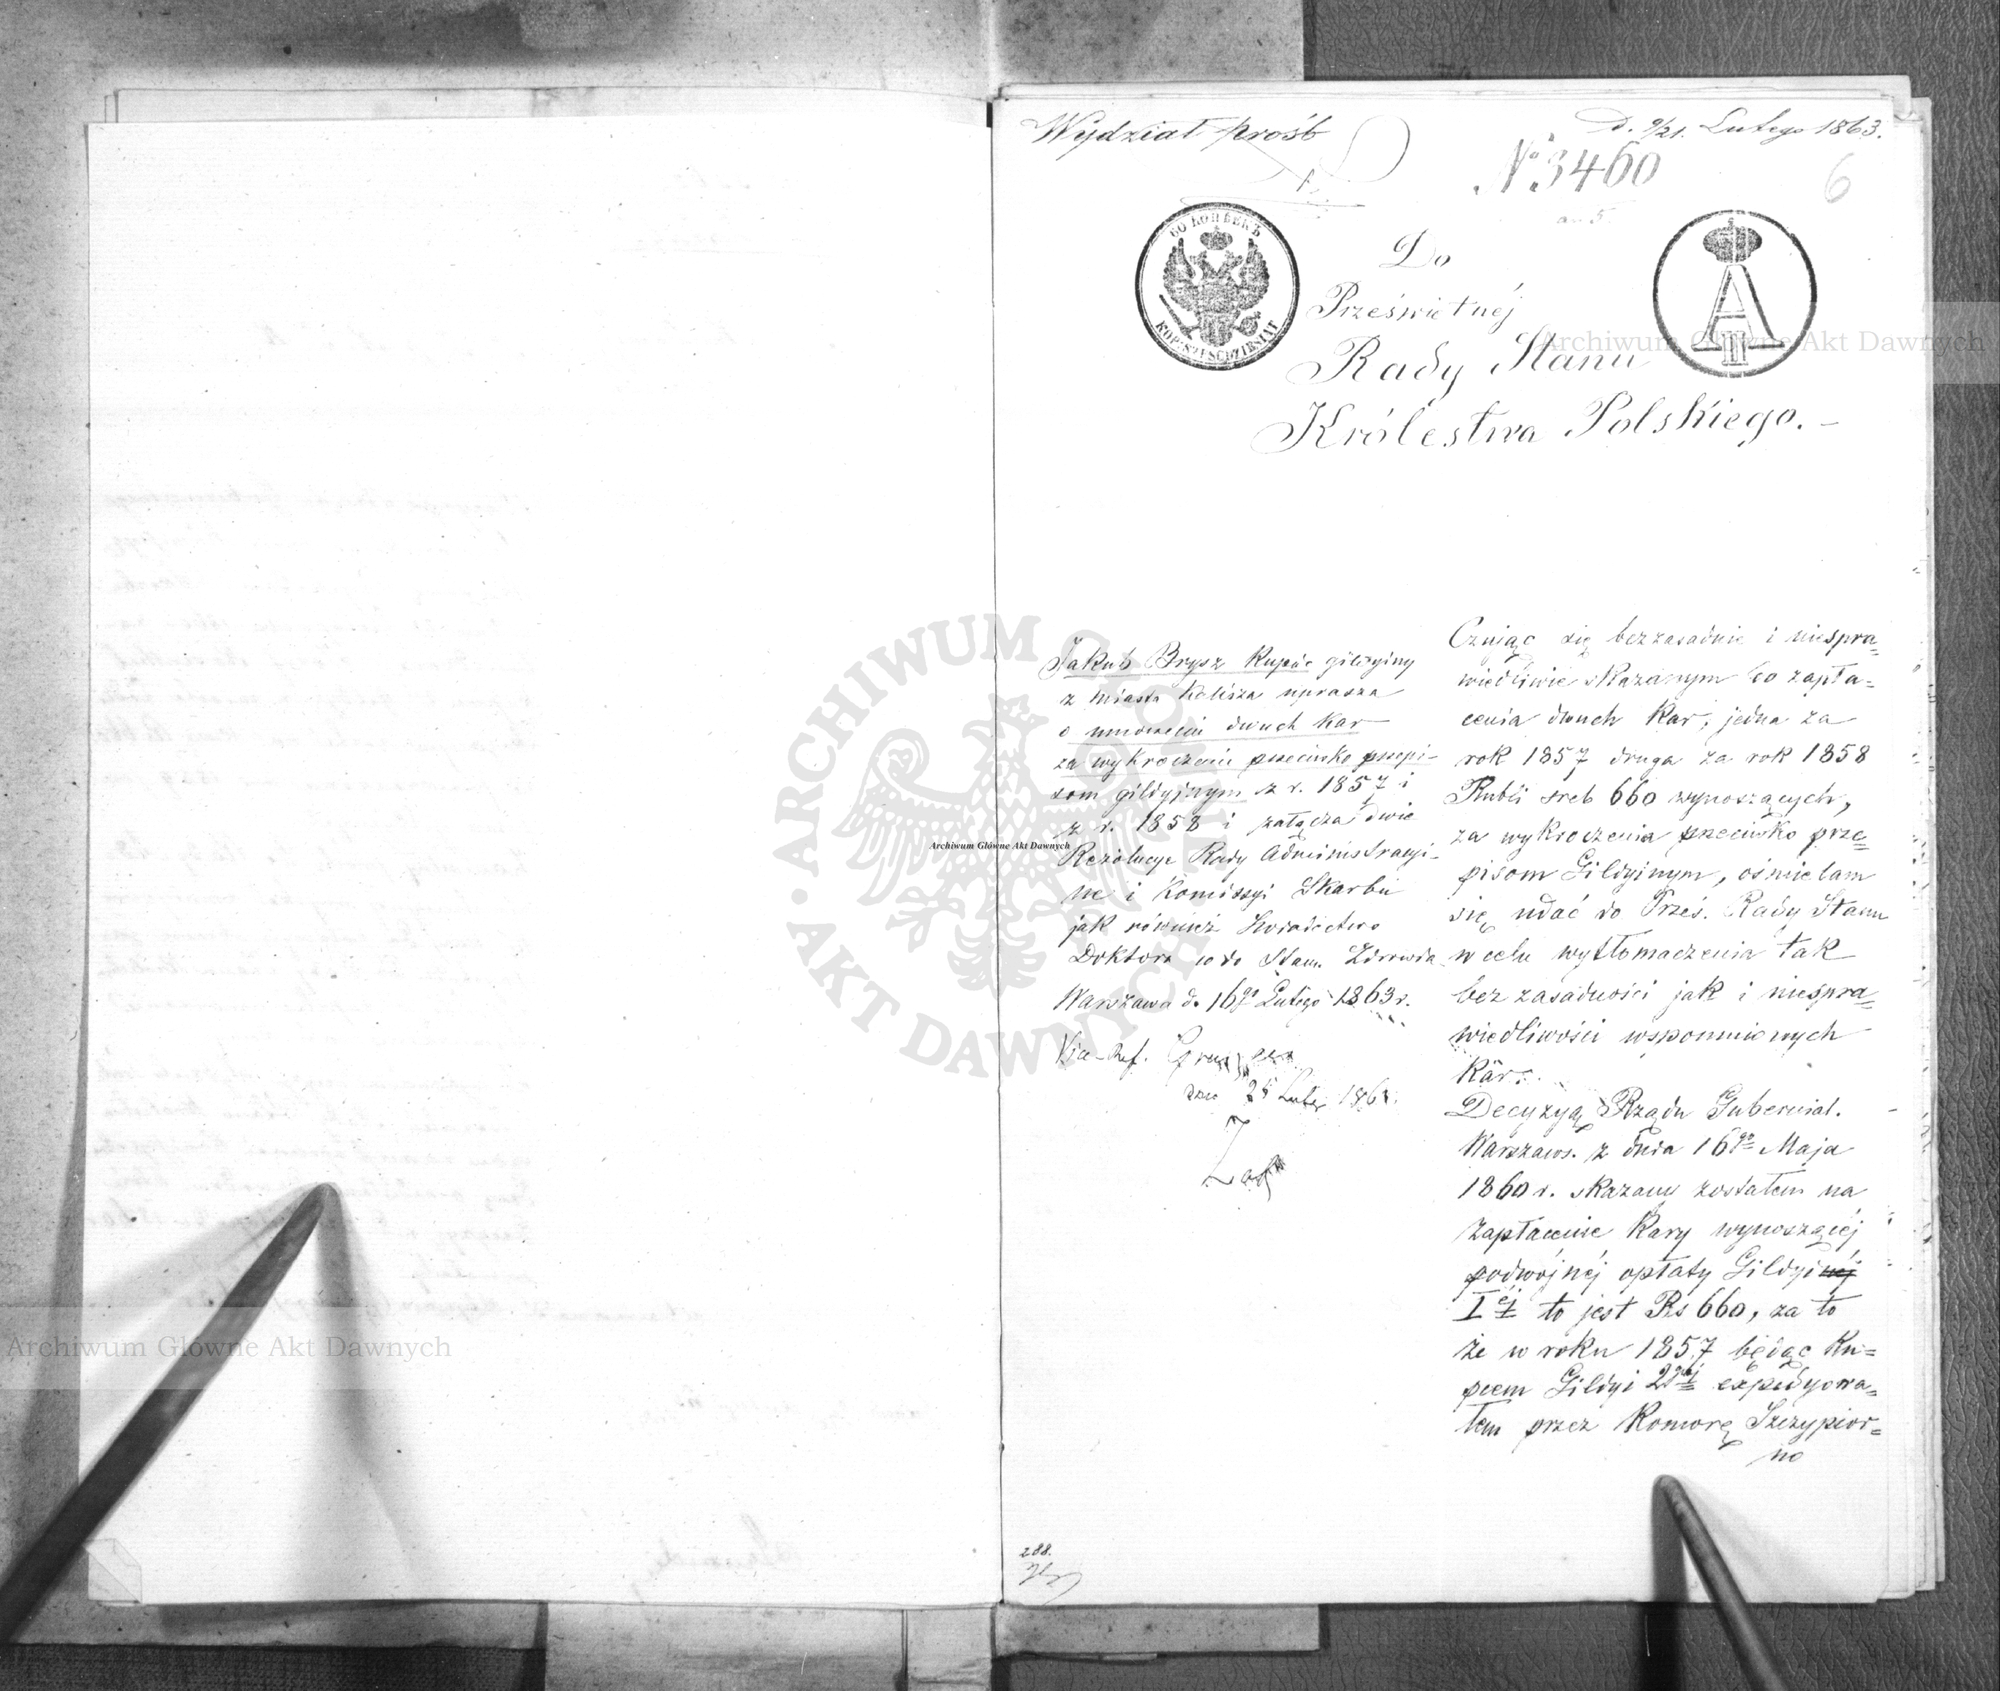 Wydział prośb
D. 9/21. Lutego 1863.
№ 3460
6
60 КОПѢЕКЪ
KOP: SZEŚĆDZIESIĄT
A II
Do
Prześwietnéj
Rady Stanu
Królestwa Polskiego. –
Jakub Brysz Kupiec gildyiny
z miasta Kalisza uprasza
o umorzenie dwuch Kar
za wykroczenie przeciwko przepi-
som gildyjnym z r. 1857 i
z r. 1858 i załącza dwie
Rezolucye Rady Administracyi-
ne i Komissyi Skarbu
jak również Swiadectwo
Doktora co do Stanu Zdrowia
Warszawa d. 16go Lutego 1863 r.
Vice-Ref.
dnia 25 Lutego 1863.
Czując się bezzasadnie i niespra=
wiedliwie skazanym do zapła=
cenia dwuch Kar, jedna za
rok 1857 druga za rok 1858
Rubli sreb 660 wynoszących,
za wykroczenia przeciwko prze=
pisom Gildyinym, ośmielam
się udać do Prześ. Rady Stanu
w celu wytłomaczenia tak
bezzasadności jak i niespra=
wiedliwości wspomnionych
Kar.
Decyzyą Rządu Gubernial.
Warszaws. z dnia 16go Maja
1860 r. skazany zostałem na
zapłacenie Kary wynoszącéj
podwójnéj opłaty Gildyinéj
Iéj to jest Rs 660, za to
że w roku 1857 będąc Ku=
pcem Gildyi 2giéj expedyowa=
łem przez Komorę Szczypior=
no
288.
ARCHIWUM GŁÓWNE AKT DAWNYCH
Archiwum Główne Akt Dawnych
Archiwum Główne Akt Dawnych
Archiwum Główne Akt Dawnych